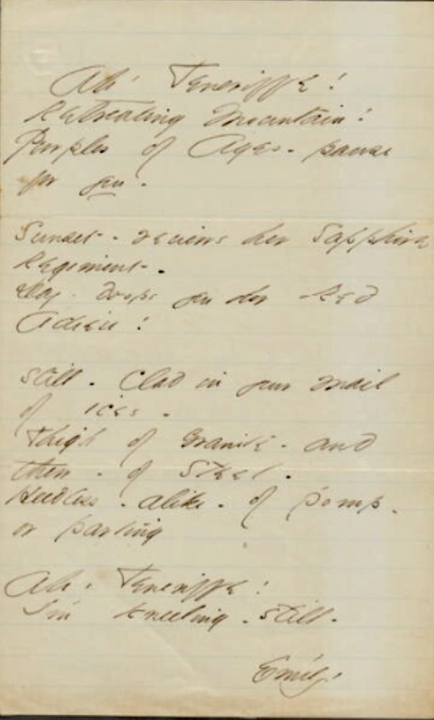 Ah! Teneriffe!
Retreating Mountain!
Purples of Ages - pause
for you -
Sunset - reviews her Sapphire
Regiment -
Day - drops you her Red
Adieu!
Still - Clad in your Mail
of ices -
Thigh of Granite - and
thew - of Steel -
Heedless - alike - of pomp -
or parting
Ah! Teneriffe!
I'm kneeling - still -
Emily -